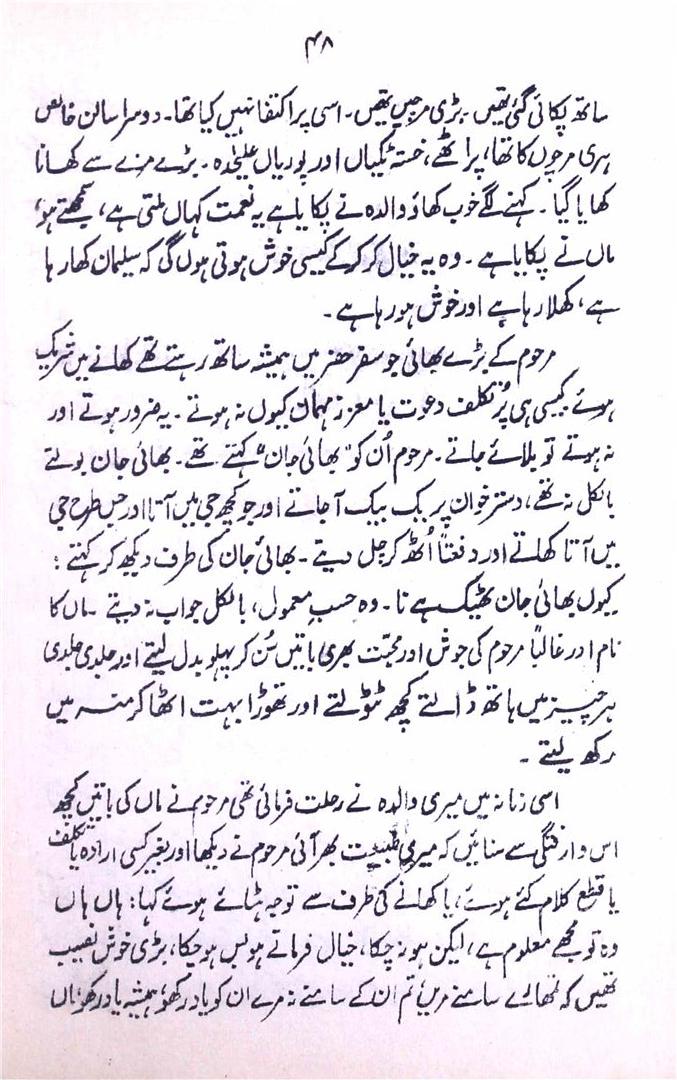 ۴۸
ساتھ پکائی گئی تھیں۔ بڑی مرچیں تھیں۔ اسی پر اکتفا نہیں کیا تھا۔ دوسرا سالن خالص
ہری مرچوں کا تھا، پراٹھے، خستہ ٹکیاں اور پوریاں علیٰحدہ۔ بڑے مزے سے کھانا
کھایا گیا۔ کہنے لگے خوب کھاؤ والدہ نے پکایا ہے یہ نعمت کہاں ملتی ہے، سمجھتے ہو،
ماں نے پکایا ہے۔ وہ یہ خیال کر کر کے کیسی خوش ہوتی ہوں گی کہ سلیمان کھا رہا
ہے، کھلا رہا ہے اور خوش ہو رہا ہے۔
مرحوم کے بڑے بھائی جو سفر حضر میں ہمیشہ ساتھ رہتے تھے کھانے میں شریک
ہوئے کیسی ہی پُر تکلف دعوت یا معزز مہمان کیوں نہ ہوتے۔ یہ ضرور ہوتے اور
نہ ہوتے تو بلائے جاتے۔ مرحوم اُن کو "بھائی جان" کہتے تھے۔ بھائی جان بولتے
بالکل نہ تھے، دستر خوان پر یک بیک آجاتے اور جو کچھ جی میں آتا اور جس طرح جی
میں آتا کھاتے اور دفعتاً اُٹھ کر چل دیتے۔ بھائی جان کی طرف دیکھ کر کہتے:
کیوں بھائی جان ٹھیک ہے نا۔ وہ حسبِ معمول، بالکل جواب نہ دیتے ۔ماں کا
نام اور غالباً مرحوم کی جوش اور محبت بھری باتیں سُن کر پہلو بدل لیتے اور جلدی جلدی
ہر چیز میں ہاتھ ڈالتے کچھ ٹٹولتے اور تھوڑا بہت اٹھا کر منہ میں
رکھ لیتے۔
اسی زمانہ میں میری والدہ نے رحلت فرمائی تھی مرحوم نے ماں کی باتیں کچھ
اس وارفتگی سے سنائیں کہ میری طبیعت بھر آئی مرحوم نے دیکھا اور بغیر کسی ارادہ یا تکلف
یا قطع کلام کئے ہوئے، یا کھانے کی طرف سے توجہ ہٹائے ہوئے کہا: ہاں ہاں
وہ تو مجھے معلوم ہے، لیکن ہونہ چکا، خیال فرماتے ہو بس ہو چکا، بڑی خوش نصیب
تھیں کہ تمھارے سامنے مریں تم ان کے سامنے نہ مرے ان کو یاد رکھو، ہمیشہ یاد رکھو، ماں